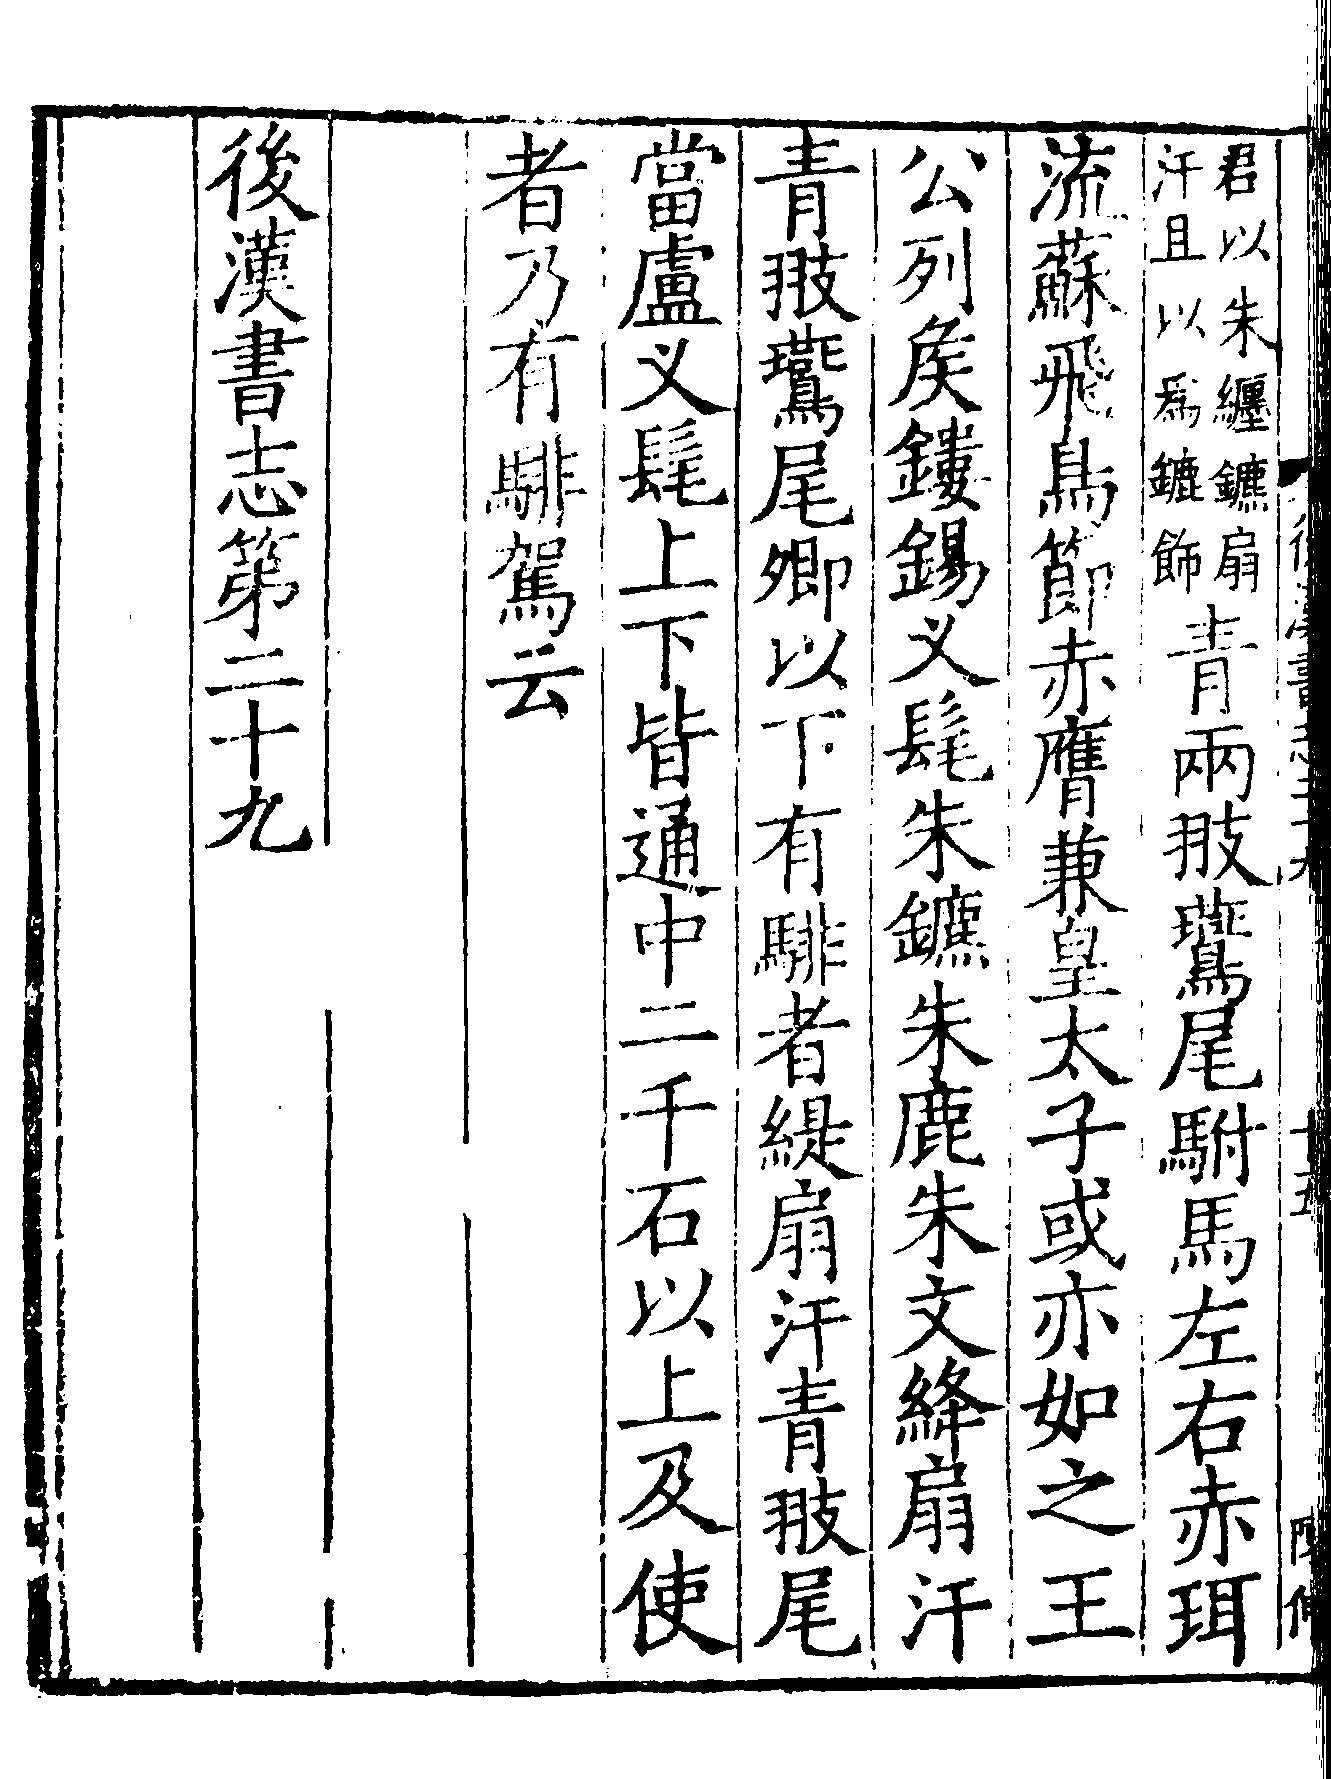 君以朱纏鑣扇
汗且以爲鑣飾
青兩翄鷰尾駙馬左右赤珥
流蘇飛鳥節赤膺兼皇太子或亦如之王
公列矦鏤鍚义髦朱鑣朱鹿朱文絳扇汗
青翄鷰尾卿以下有騑者緹扇汗青翄尾
當盧义髦上下皆通中二千石以上及使
者乃有騑駕云
後漢書志第二十九